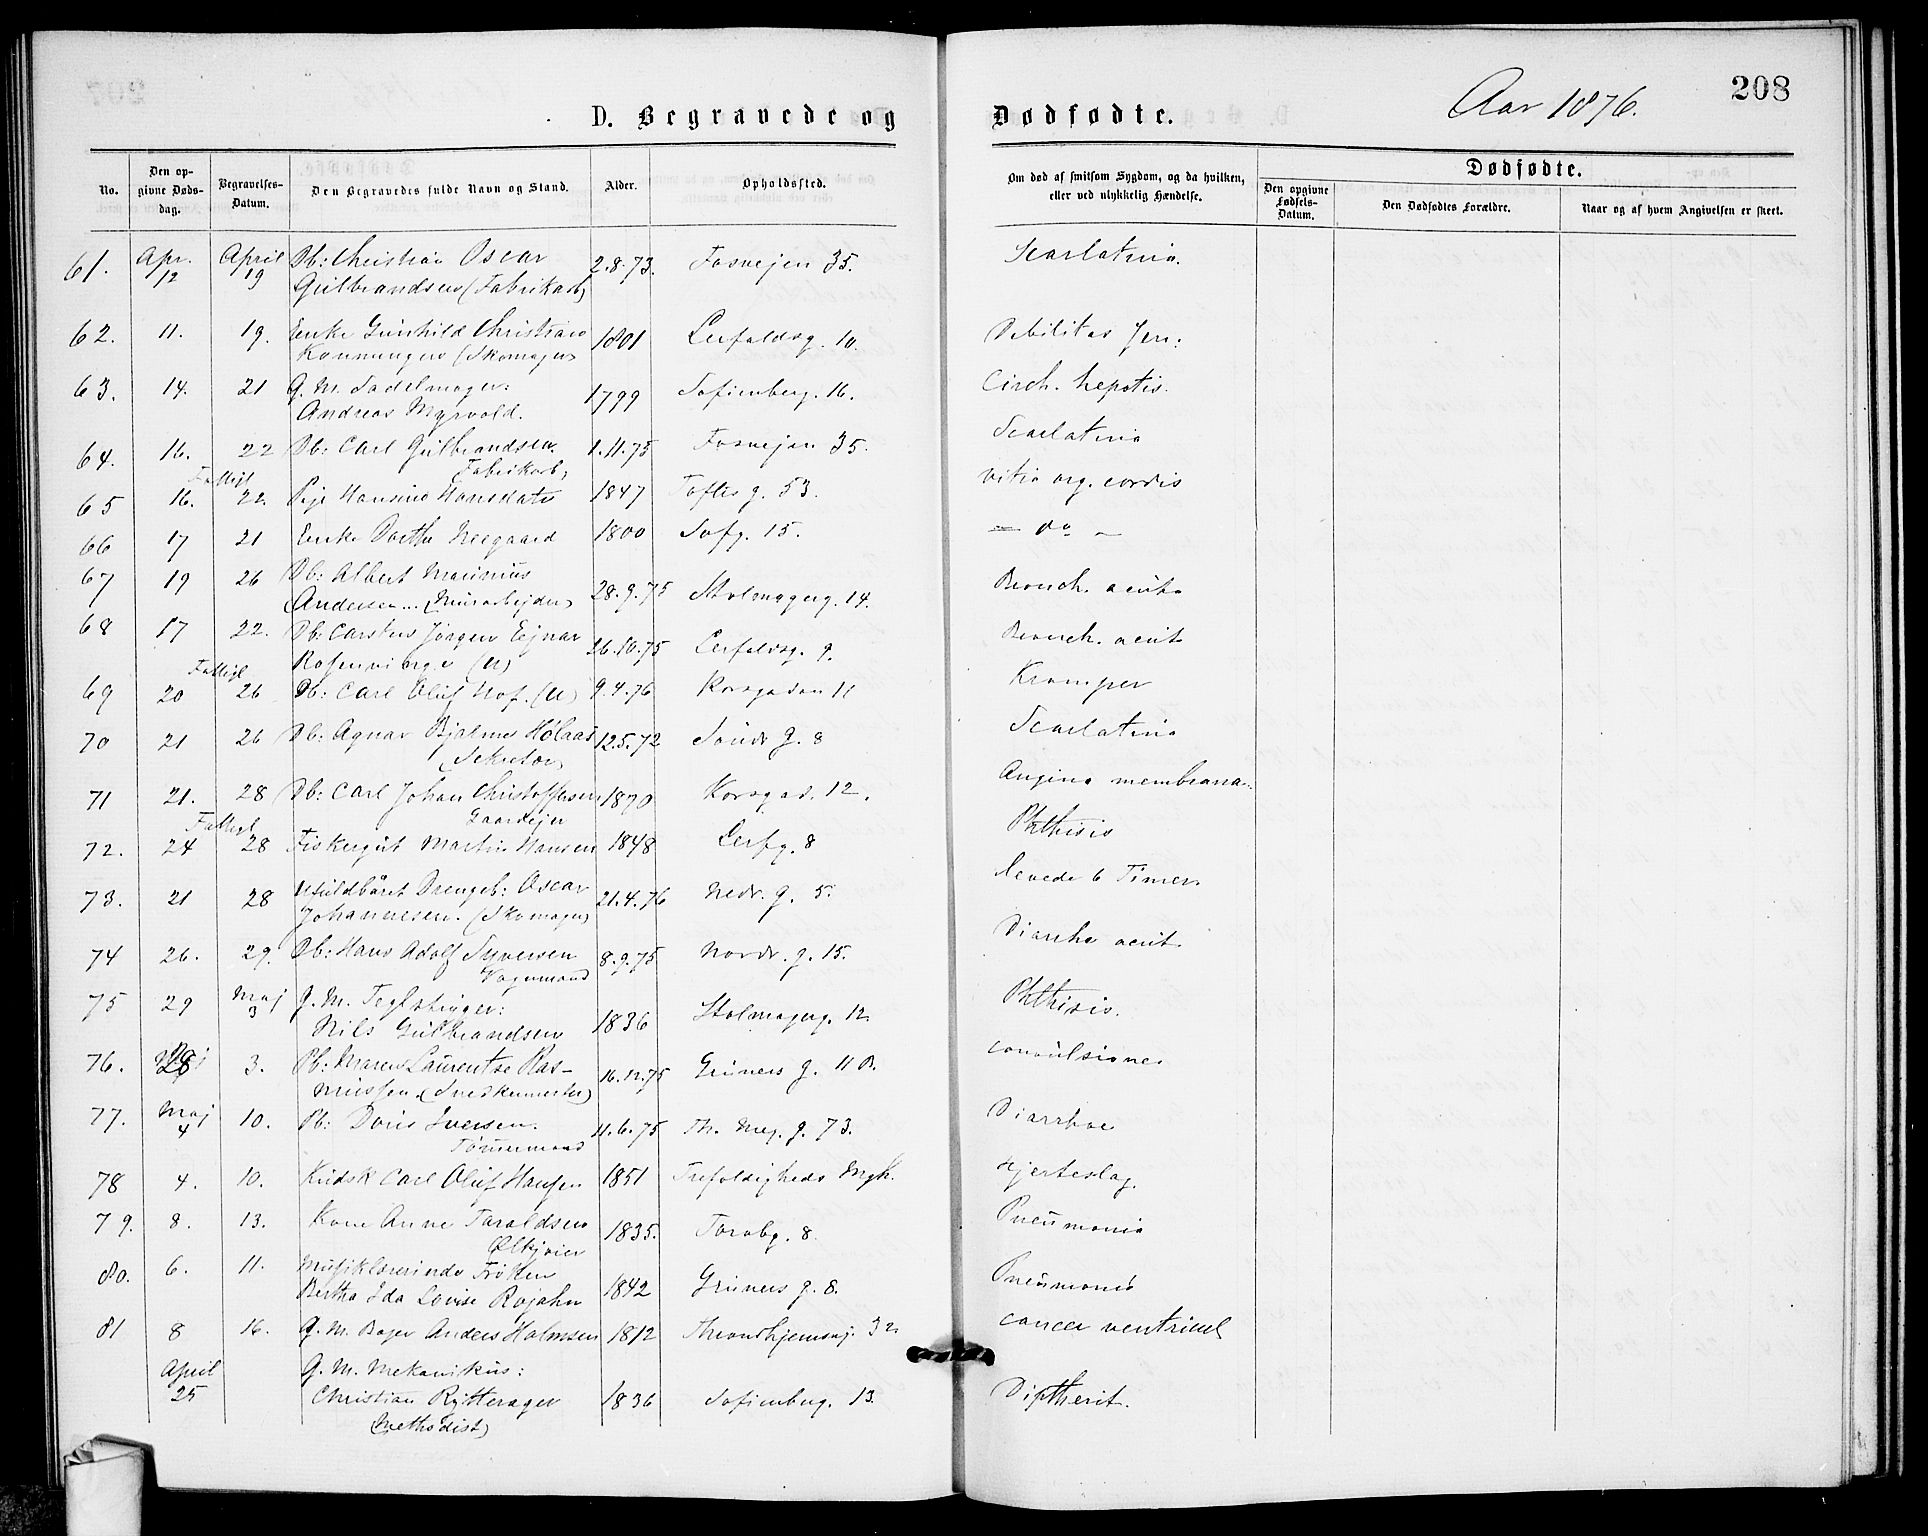 208
Aar 1876.
D. Begravede og Dødfødte.
No. Den opgivne Dødsdag. Begravelses-Datum. Den Begravedes fulde Navn og Stand. Alder. Opholdssted. Om død af smitsom Sygdom, og da hvilken, eller ved ulykkelig Hændelse. Dødfødte. Den opgivne Fødsels-Datum. Den Dødfødtes Forældre. Naar og af hvem Angivelsen er skeet.
61. Apr. 12 April 19 Db: Christian Oscar 2.8.73. Fosvejen 35. Scarlatina.
Gulbrandsen (Fabrikarb)
62. 11. 19. Enke Gunhild Christians 1801 Lerfaldsg. 10. Debilitas sen:
(Skomager)
63. 14. 21 G. M. Sadelmager: 1799 Sofienberg. 16. Cirrh. hepatis.
Andreas Myrvold.
64. 16. 22 Db: Carl Gulbrandsen 1.11.75 Fosvejen 35. Scarlatina
Fabrikarb,
Fattigl
65 16. 22. Pige Hansine Hansdatr 1847 Toftes g. 53. Vitia org. cordis
66 17 21 Enke Dorthe Neegaard 1800 Sofg. 15. — do —
67 19 26 Db: Albert Marinius 28.9.75 Stolmagerg. 14. Bronch. acuta
Andersen... (Murarbejder)
68 17 22. Db: Carsten Jørgen Ejnar 26.10.75 Lerfaldsg. 9. Bronch. acut
Rosenvinge (U)
Fattigl
69 20 26 Db: Carl Oluf Hof. (U) 9.4.76 Korsgaden 11 Kramper
70 21 26 Db: Agnar Hjalmer Hølaas 12.5.72 Søndr g. 8 Scarlatina
(Sekretær)
71 21. 28 Db: Carl Johan Christoffersen 1870 Korsgad. 12. Angina membrana..
Gaardejer
Fattigl
72. 24 28 Fiskergut Martin Hansen 1848 Lerfg. 8 Phthisis
73. 21 28 Ufuldbåret Drengeb: Oscar 21.4.76 Nedr. g. 5. levede 6 Timer.
Johannesen. (Skomager)
74 26. 29. Db: Hans Adolf Syversen 8.9.75 Nordr. g. 15. Diarrhe acut.
Vognmand
75 29 Maj 3 G. M. Teglstryger: 1836 Stolmagerg. 12 Phthisis.
Nils Gulbrandsen
76. 28 3. Pb: Maren Laurentse Ras- 16.12.75 Grüners g. 11 B. convulsiones
mussen. (Snedkermester)
77. Maj 4 10. Pb: Doris Iversen. 11.6.75 Th. Mey. g. 73. Diarrhoe
Tømmermand
78 4. 10. Kudsk Carl Oluf Hansen 1851 Trefoldigheds Mgh. Hjerteslag.
79. 8. 13. Kone Anne Taraldsen 1835. Torvbg. 8. Pneumonia
Ølkjører
80. 6. 11. Musiklærerinde Frøken 1842 Grüners g. 8. Pneumonia
Bertha Ida Lovise Rojahn
81 8 16. G. M. Bager Anders Holmsen 1812 Throndhjemsvj. 32 cancer ventricul
April 25 G. M. Mekanikus: 1836 Sofienberg. 13. Diptherit.
Christian Rytterager
(Methodist)